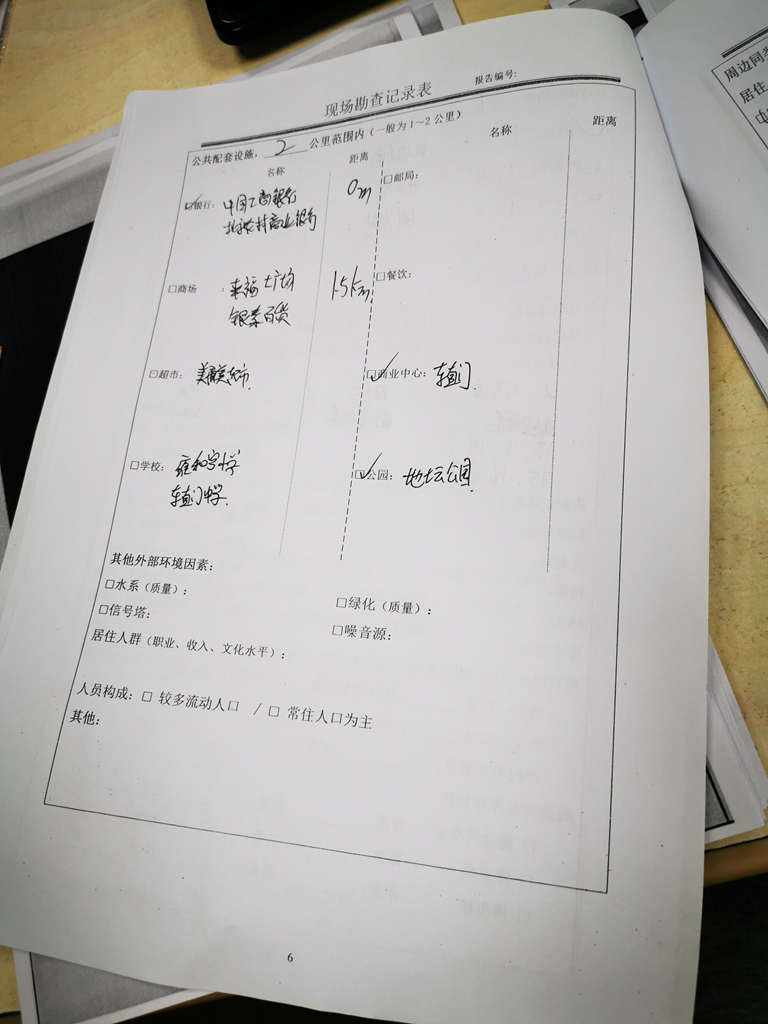 现场勘查记录表
报告编号:
公共配套设施, 2 公里范围内（一般为1~2公里）
名称 距离 名称 距离
☑银行: 中国工商银行 0m □邮局:
商业银行
□商场 : 来福士广场 1.5km □餐饮:
银泰百货
□超市: ☑商业中心: 东直门
□学校: 雍和宫小学 ☑公园: 地坛公园
东直门中学
其他外部环境因素:
□水系（质量）: □绿化（质量）:
□信号塔: □噪音源:
居住人群（职业、收入、文化水平）:
人员构成: □ 较多流动人口 / □ 常住人口为主
其他:
6
周边同类
居住